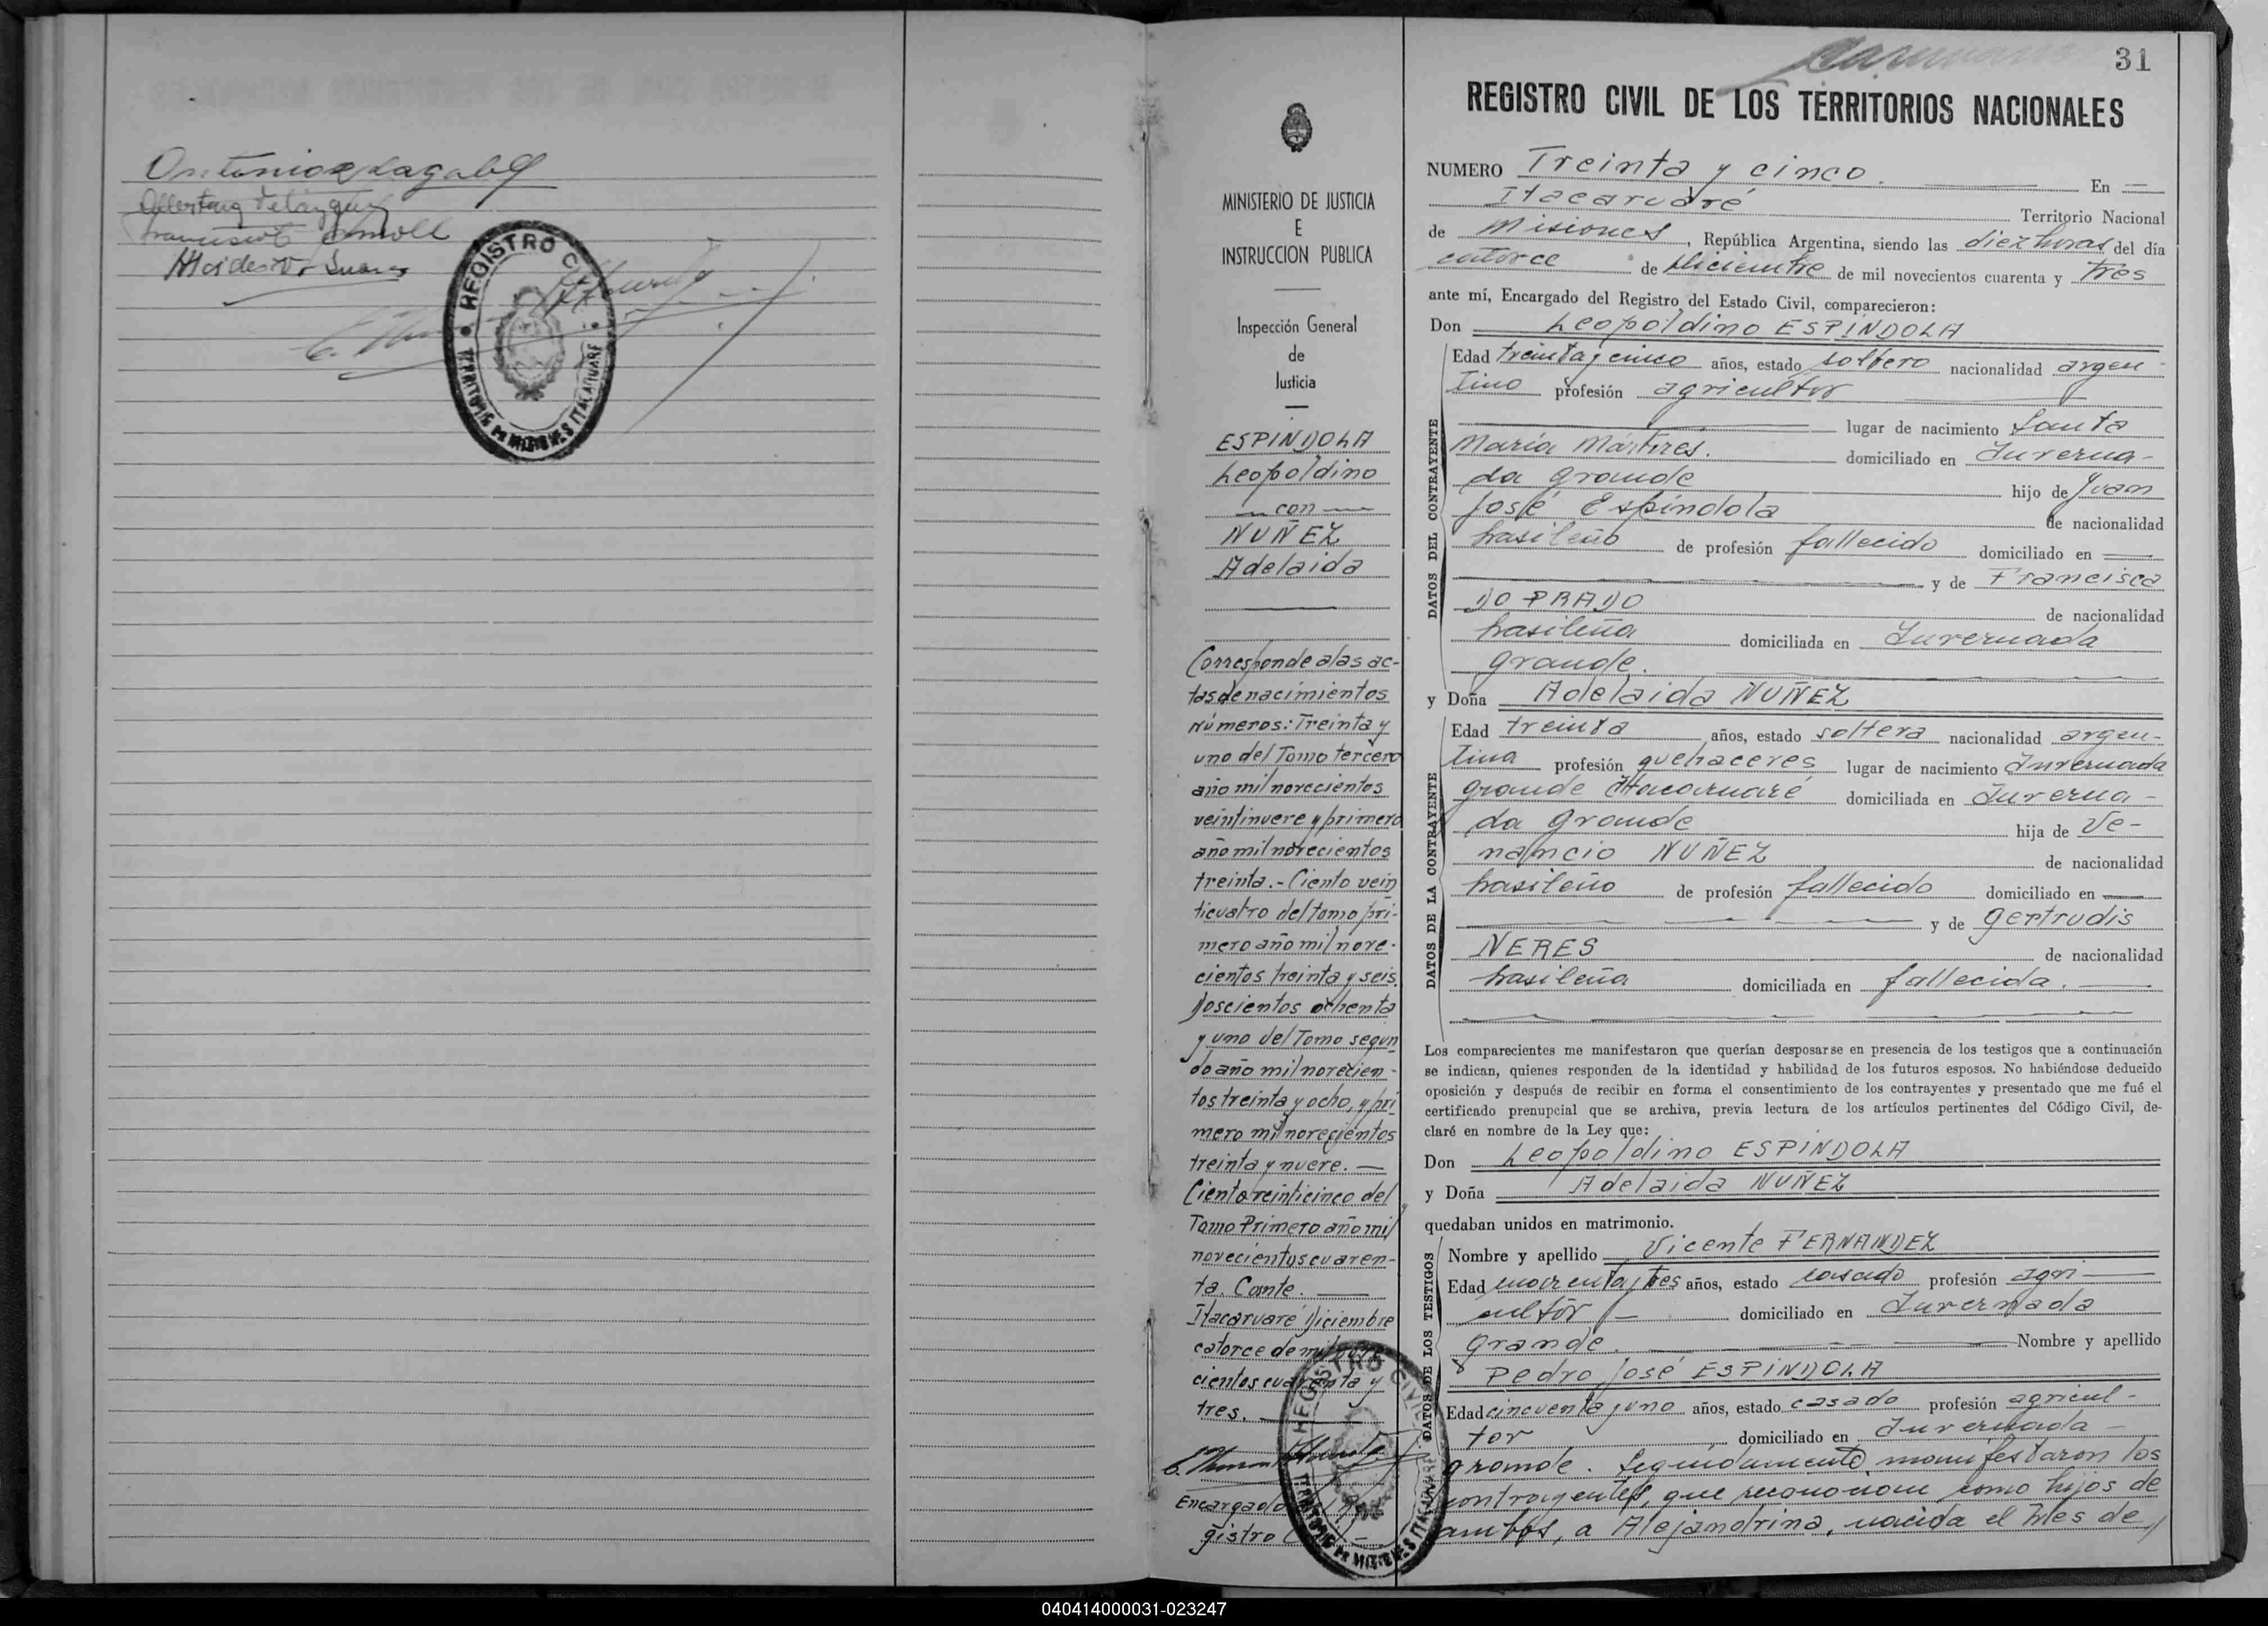 Francisco Amoll
Alcides V. Suarez
REGISTRO CIVIL
TERRITORIO DE MISIONES ITACARUARE
MINISTERIO DE JUSTICIA
E
INSTRUCCION PUBLICA
Inspección General
de
Justicia
ESPINDOLA
Leopoldino
con
NUÑEZ
Adelaida
Corresponde a las ac-
tas de nacimientos
números: Treinta y
uno del Tomo tercero
año mil novecientos
veintinueve y primero
año mil novecientos
treinta.- Ciento vein
ticuatro del tomo pri-
mero año mil nove-
cientos treinta y seis.
Doscientos ochenta
y uno del Tomo segun
do año mil novecien-
tos treinta y ocho, y pri
mero mil novecientos
treinta y nueve. —
Ciento veinticinco del
Tomo Primero año mil
novecientos cuaren-
ta. Conste. —
Itacaruaré Diciembre
catorce de mil nove
cientos cuarenta y
tres. —
Encargado
gistro
REGISTRO CIVIL
TERRITORIO DE MISIONES ITACARUARE
31
REGISTRO CIVIL DE LOS TERRITORIOS NACIONALES
NUMERO Treinta y cinco. En —
Itacaruaré Territorio Nacional
de Misiones, República Argentina, siendo las diez horas del día
catorce de Diciembre de mil novecientos cuarenta y tres
ante mí, Encargado del Registro del Estado Civil, comparecieron:
Don Leopoldino ESPINDOLA
DATOS DEL CONTRAYENTE
Edad treinta y cinco años, estado soltero nacionalidad argen-
tino profesión agricultor
lugar de nacimiento Santa
María Mártires. domiciliado en Inverna-
da grande hijo de Juan
José Espíndola de nacionalidad
brasileño de profesión fallecido domiciliado en —
y de Francisca
DO PRADO de nacionalidad
brasileña domiciliada en Invernada
grande.
y Doña Adelaida NUÑEZ
DATOS DE LA CONTRAYENTE
Edad treinta años, estado soltera nacionalidad argen-
tina profesión quehaceres lugar de nacimiento Invernada
grande Itacaruaré domiciliada en Inverna-
da grande hija de Ve-
nancio NUÑEZ de nacionalidad
brasileño de profesión fallecido domiciliado en —
y de Gertrudis
NERES de nacionalidad
brasileña domiciliada en fallecida. —
Los comparecientes me manifestaron que querían desposarse en presencia de los testigos que a continuación
se indican, quienes responden de la identidad y habilidad de los futuros esposos. No habiéndose deducido
oposición y después de recibir en forma el consentimiento de los contrayentes y presentado que me fué el
certificado prenupcial que se archiva, previa lectura de los artículos pertinentes del Código Civil, de-
claré en nombre de la Ley que:
Don Leopoldino ESPINDOLA
y Doña Adelaida NUÑEZ
quedaban unidos en matrimonio.
DATOS DE LOS TESTIGOS
Nombre y apellido Vicente FERNANDEZ
Edad cuarenta y tres años, estado casado profesión agri-
cultor domiciliado en Invernada
grande. Nombre y apellido
Pedro José ESPINDOLA
Edad cincuenta y uno años, estado casado profesión agricul-
tor domiciliado en Invernada
grande. Seguidamente manifestaron los
contrayentes, que reconocian como hijos de
ambos, a Alejandrina, nacida el mes de
040414000031-023247